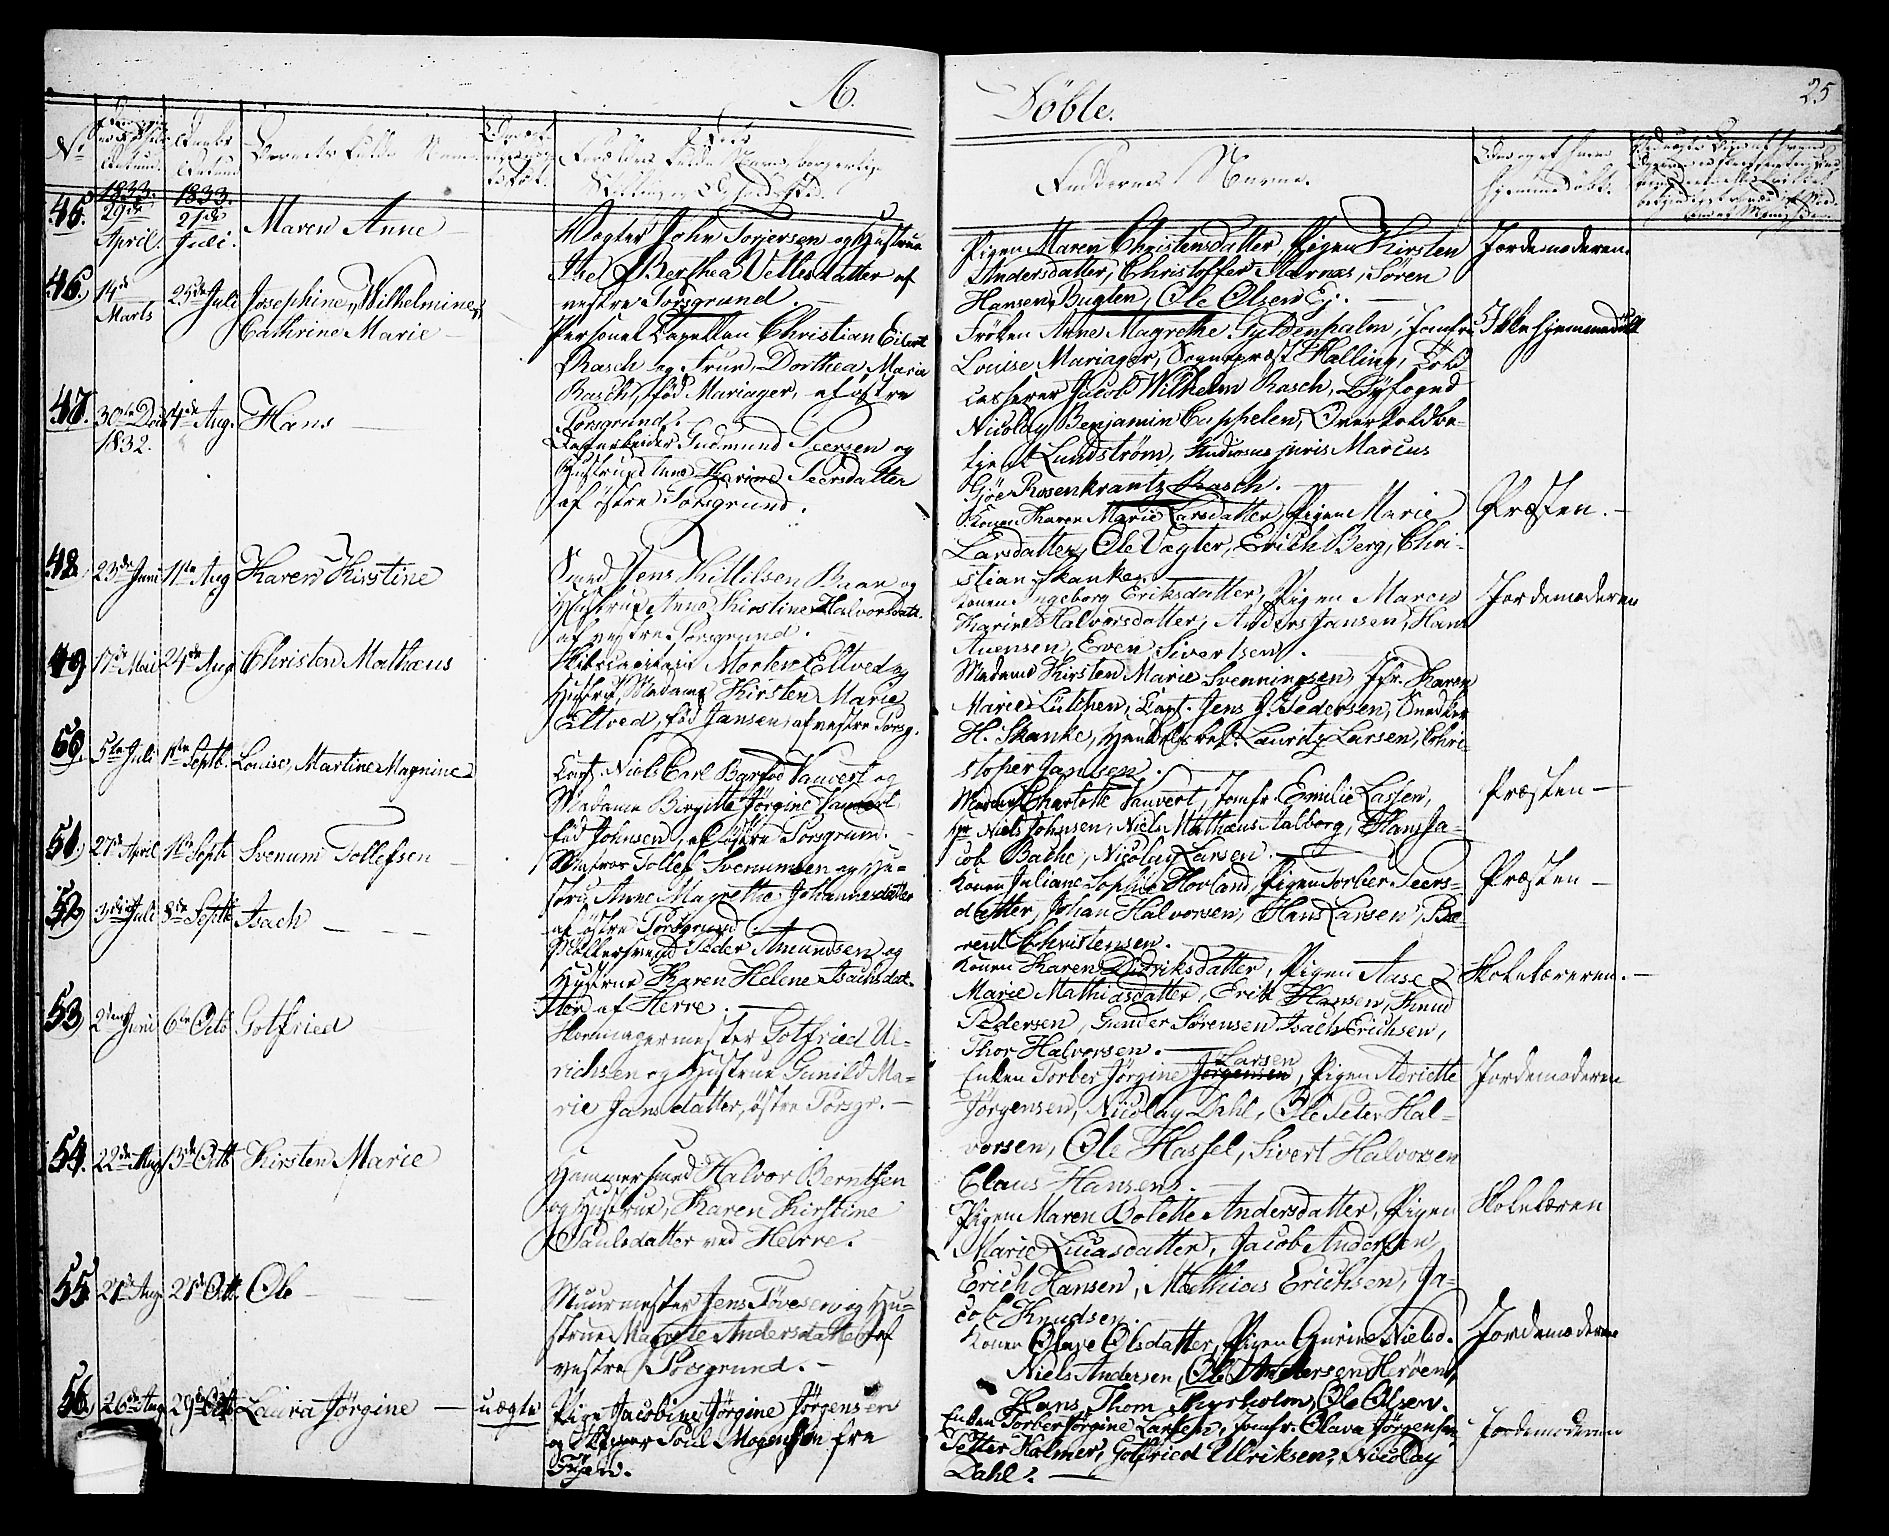 A.
Döbte.
25
No
1833.
1833.
Barnets fulde Navn
Faddernes Navne.
45.
29de
April.
21de
Juli.
Maren Anne
Vogter John Torjersen og Hustrue
Berthea Vettesdatter af
vestre Porsgrund.
Pigen Maren Christensdatter, Pigen Kirsten
Andersdatter, Christoffer, Søren
Hansen Bugten, Ole Olsen Ej.
Jordemoderen.
46.
14de
Marts
25de Juli
Josephine, Wilhelmine,
Cathrine Marie
Personel Capellan Christian Eilert
Rasch og Frue, Dorthea Maria
Rasch, fød Mariager, af østre
Porsgrund.
Frøken Anne Magrethe Gyldenpalm, Jomfru
Louise Mariager, Sognepræst Halling, Told
casserer Jacob Wilhelm Rasch, Byfoged
Nicolay Benjamin Cappelen, Overtoldbe-
tjent Lundstrøm, studiosus juris Marcus
Gjöe Rosenkrantz Rasch.
Ikke hjemmedöbt
47.
30te Dec.
1832.
4de Aug.
Hans
Gudmund Seersen og
Hustrue Anne Karine Peersdatter
af östre Porsgrund.
Konen Karen Marie Larsdatter, Pigen Marie
Larsdatter, Ole Vagter, Erich Berg, Chri-
stian Skanke.
Præsten.
48.
23de Juni
11te Aug
Karen Kirstine
Jens Kittilsen Baar og
Hustrue Anne Kirstine Halvorsdatr.
af vestre Porsgrund.
Konen Ingeborg Eriksdatter, Pigen Maren
Karine Halvorsdatter, Anders Jansen, Hans
Auensen, Even Sivertsen.
Jordemoderen
49
17de Mai
24de Aug
Christen Mathæus
Skibscapitain Morten Eltved og
Hustrue Madame Kirsten Marie
Eltved, fød Jansen, af vestre Porsg.
Madame Kirsten Marie Svenningsen, Jfr. Karen
Marie Lütchen, Capt. Jens J. Pedersen, Snedker
H. Skanke, Handelsbet. Lauritz Larsen, Chri-
stopher Jansen.
50.
5te Juli
1ste Septb.
Louise, Martine Magnine
Capt. Niels Carl Barfod Vauvert og
Madame Birgitte Jørgine Vauvert
fød Johnsen, af østre Porsgrund.
Madam Charlotte Vauvert, Jomfr. Emilie Lassen,
Hr Niels Johnsen, Niels Mathæus Aalborg, Hans Ja-
cob Bache, Nicolay Larsen.
Præsten
51.
27de April
1ste Septb
Svenum Tollefsen
Matros Tollef Svenumsen og Hu-
strue Anne Magrethe Johannesdatter
af östre Porsgrund
Konen Juliane Sophie Hovland, Pigen Torber Seers-
datter, Johan Halvorsen, Hans Larsen, Be-
rent Christensen.
Præsten
52.
3die Juli
8de Septb
Isach
Møllersvend Peder Amundsen og
Hustrue Karen Helene Isachsdat-
ter af Herre.
Konen Karen Didriksdatter, Pigen Aase
Marie Mathiasdatter, Erik Hansen, Knud
Pedersen, Gunder Sørensen Isach Erichsen,
Thor Halvorsen.
Skolelæreren.
53.
2den Juni
6te Octb
Gotfried
Skomagermester Gotfried Ul-
richsen og Hustrue Gunild Ma-
rie Jansdatter, östre Porsgr.
Larsen
Enken Torber Jörgine Jörgensen, Pigen Adriette
Jörgensen, Nicolay Dahl, Ole Peter Hal-
vorsen, Ole Hassel, Sivert Halvorsen
Claus Hansen.
Jordemoderen
54.
22de Aug
13de Octb
Kirsten Marie
Hammersmed Halvor Berntsen
og Hustrue, Karen Kirstine
Paulsdatter ved Herre.
Pigen Maren Bolette Andersdatter, Pigen
Marie Lucasdatter, Jacob Andersen,
Erich Hansen, Mathias Erichsen, Ja-
cob Knudsen.
Skolelæren
55
21de Aug
21de Octb.
Ole
Muurmester Jens Tövesen og Hu-
strue Magrete Andersdatter af
vestre Porsgrund.
Konen Olave Olsdatter, Pigen Gurine Nielsd.
Niels Andersen, Ole Andersen Herøen,
Hans Thom Myrholm, Ole Olsen.
Jordemoderen
56.
26de Aug
29de Octb
Laura Jörgine
uægte
Pige Jacobine Jörgine Jörgensen
og Skipper Poul Mogensen fra
Fyen.
Enken Torber Jørgine Larsen, Jomfr. Olava Jørgensen
Petter Kalmer, Gotfried Ulriksen, Nicolay
Dahl.
Jordemoderen